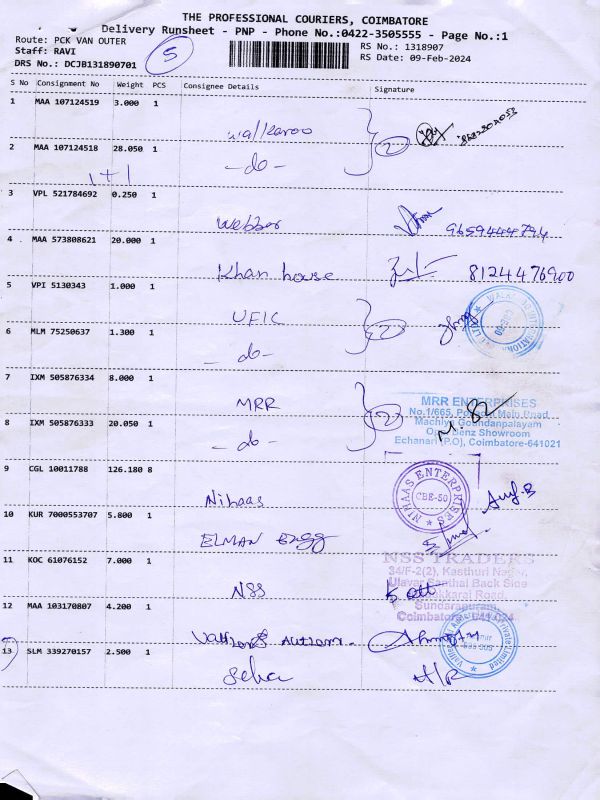 THE PROFESSIONAL COURIERS, COIMBATORE
Delivery Runsheet - PNP - Phone No.:0422-3505555 - Page No.:1
Route: PCK VAN OUTER
Staff: RAVI
DRS No.: DCJB131890701
5
RS No.: 1318907
RS Date: 09-Feb-2024
S No Consignment No Weight PCS Consignee Details Signature
1 MAA 107124519 3.000 1
walkaroo
2
2 MAA 107124518 28.050 1
- do -
1+1
3 VPL 521784692 0.250 1
Webber 9659444794
4 MAA 573808621 20.000 1
Khan house 8124476900
5 VPI 5130343 1.000 1
UFIC
2
6 MLM 75250637 1.300 1
- do -
7 IXM 505876334 8.000 1
MRR
2
MRR ENTERPRISES
No.1/665, Main Road,
Machiya Goundanpalayam
Opp. Benz Showroom
Echanari (P.O), Coimbatore-641021
8 IXM 505876333 20.050 1
- do -
9 CGL 10011788 126.180 8
Nihaas
NIHAAS ENTERPRISES
CBE-50
10 KUR 7000553707 5.800 1
ELMAN Engg
11 KOC 61076152 7.000 1
NSS
NSS TRADERS
34/F-2(2), Kasthuri Nagar,
Back Side
Road,
Sundarapuram,
Coimbatore
12 MAA 103170807 4.200 1
Private Limited
13 SLM 339270157 2.500 1